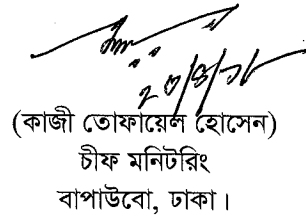 (কাজী তোফায়েল হোসেন)
চীফ মনিটরিং
বাপাউবো, ঢাকা।